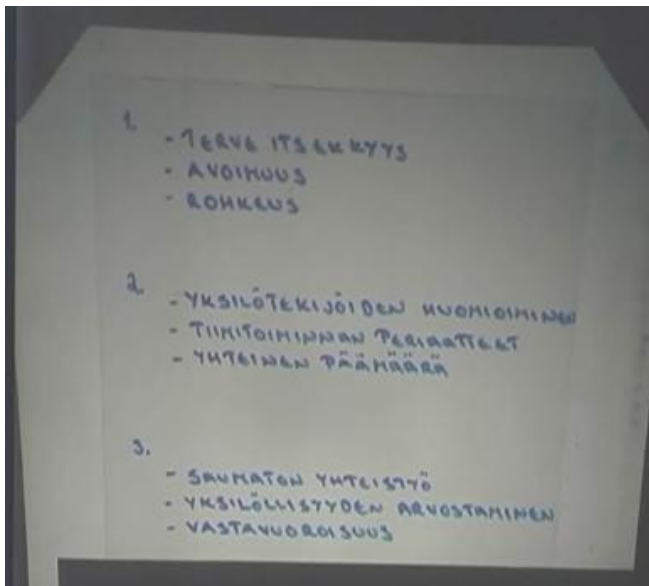 1.
- TERVE ITSEKKYYS
- AVOIMUUS
- ROHKEUS
2.
- YKSILÖTEKIJÖIDEN HUOMIOIMINEN
- TIIMITOIMINNAN PERIAATTEET
- YHTEINEN PÄÄMÄÄRÄ
3.
- SAUMATON YHTEISTYÖ
- YKSILÖLLISYYDEN ARVOSTAMINEN
- VASTAVUOROISUUS